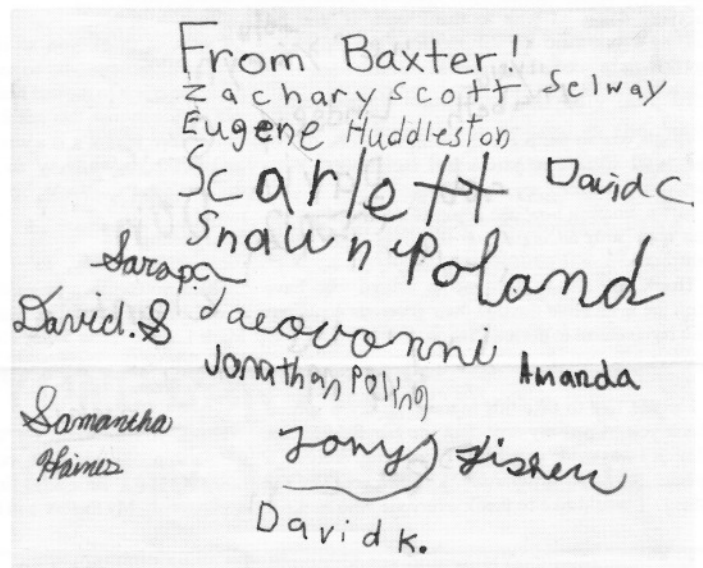 From Baxter!
Zachary Scott Selway
Eugene Huddleston
Scarlett David C.
Shawn Poland
Sarapa
David.S Jaeovonni
Jonathan Poling Amanda
Samantha
Haines
Tony Fisher
David K.